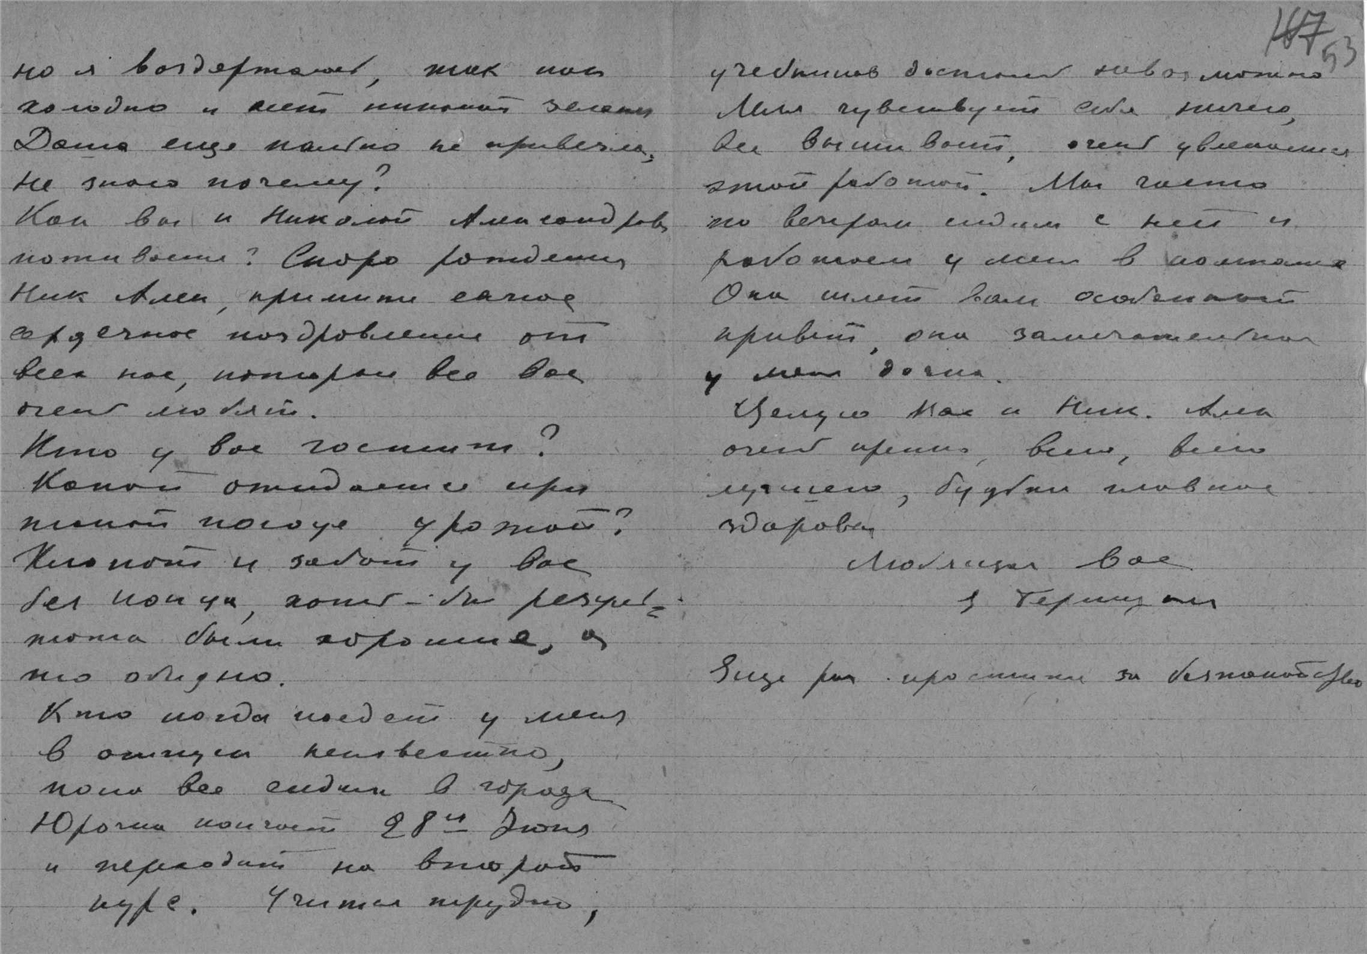 53
но я воздержалась, так как
холодно и нет никакой зелени
Даша еще пальто не привезла,
не знаю почему?
Как вы и Николай Александров
поживаете? Скоро рождение
Ник Алек, примите самое
сердечное поздравление от
всех нас, которые все вас
очень любят.
Кто у вас гостит?
Какой ожидается при
такой погоде урожай?
Хлопот и забот у вас
без конца, хоть-бы резуль=
тата были хорошие, а
то обидно.
Кто когда поедет у меня
в отпуск неизвестно,
пока все сидим в городе
Юрочка кончает 28го Июня
и переходит на второй
курс. Учится трудно,
учебников достать невозможно
чувствует себя ничего,
все вышивает, очень увлекается
этой работой. Мы часто
по вечерам сидим с ней и
работаем у меня в комнате
Она шлет вам особенный
привет, она замечательная
у меня дочка.
Целую Вас и Ник. Алек
очень крепко, всего, всего
лучшего, будьте главное
здоровы
Любящая Вас
Еще раз простите за безпокойство